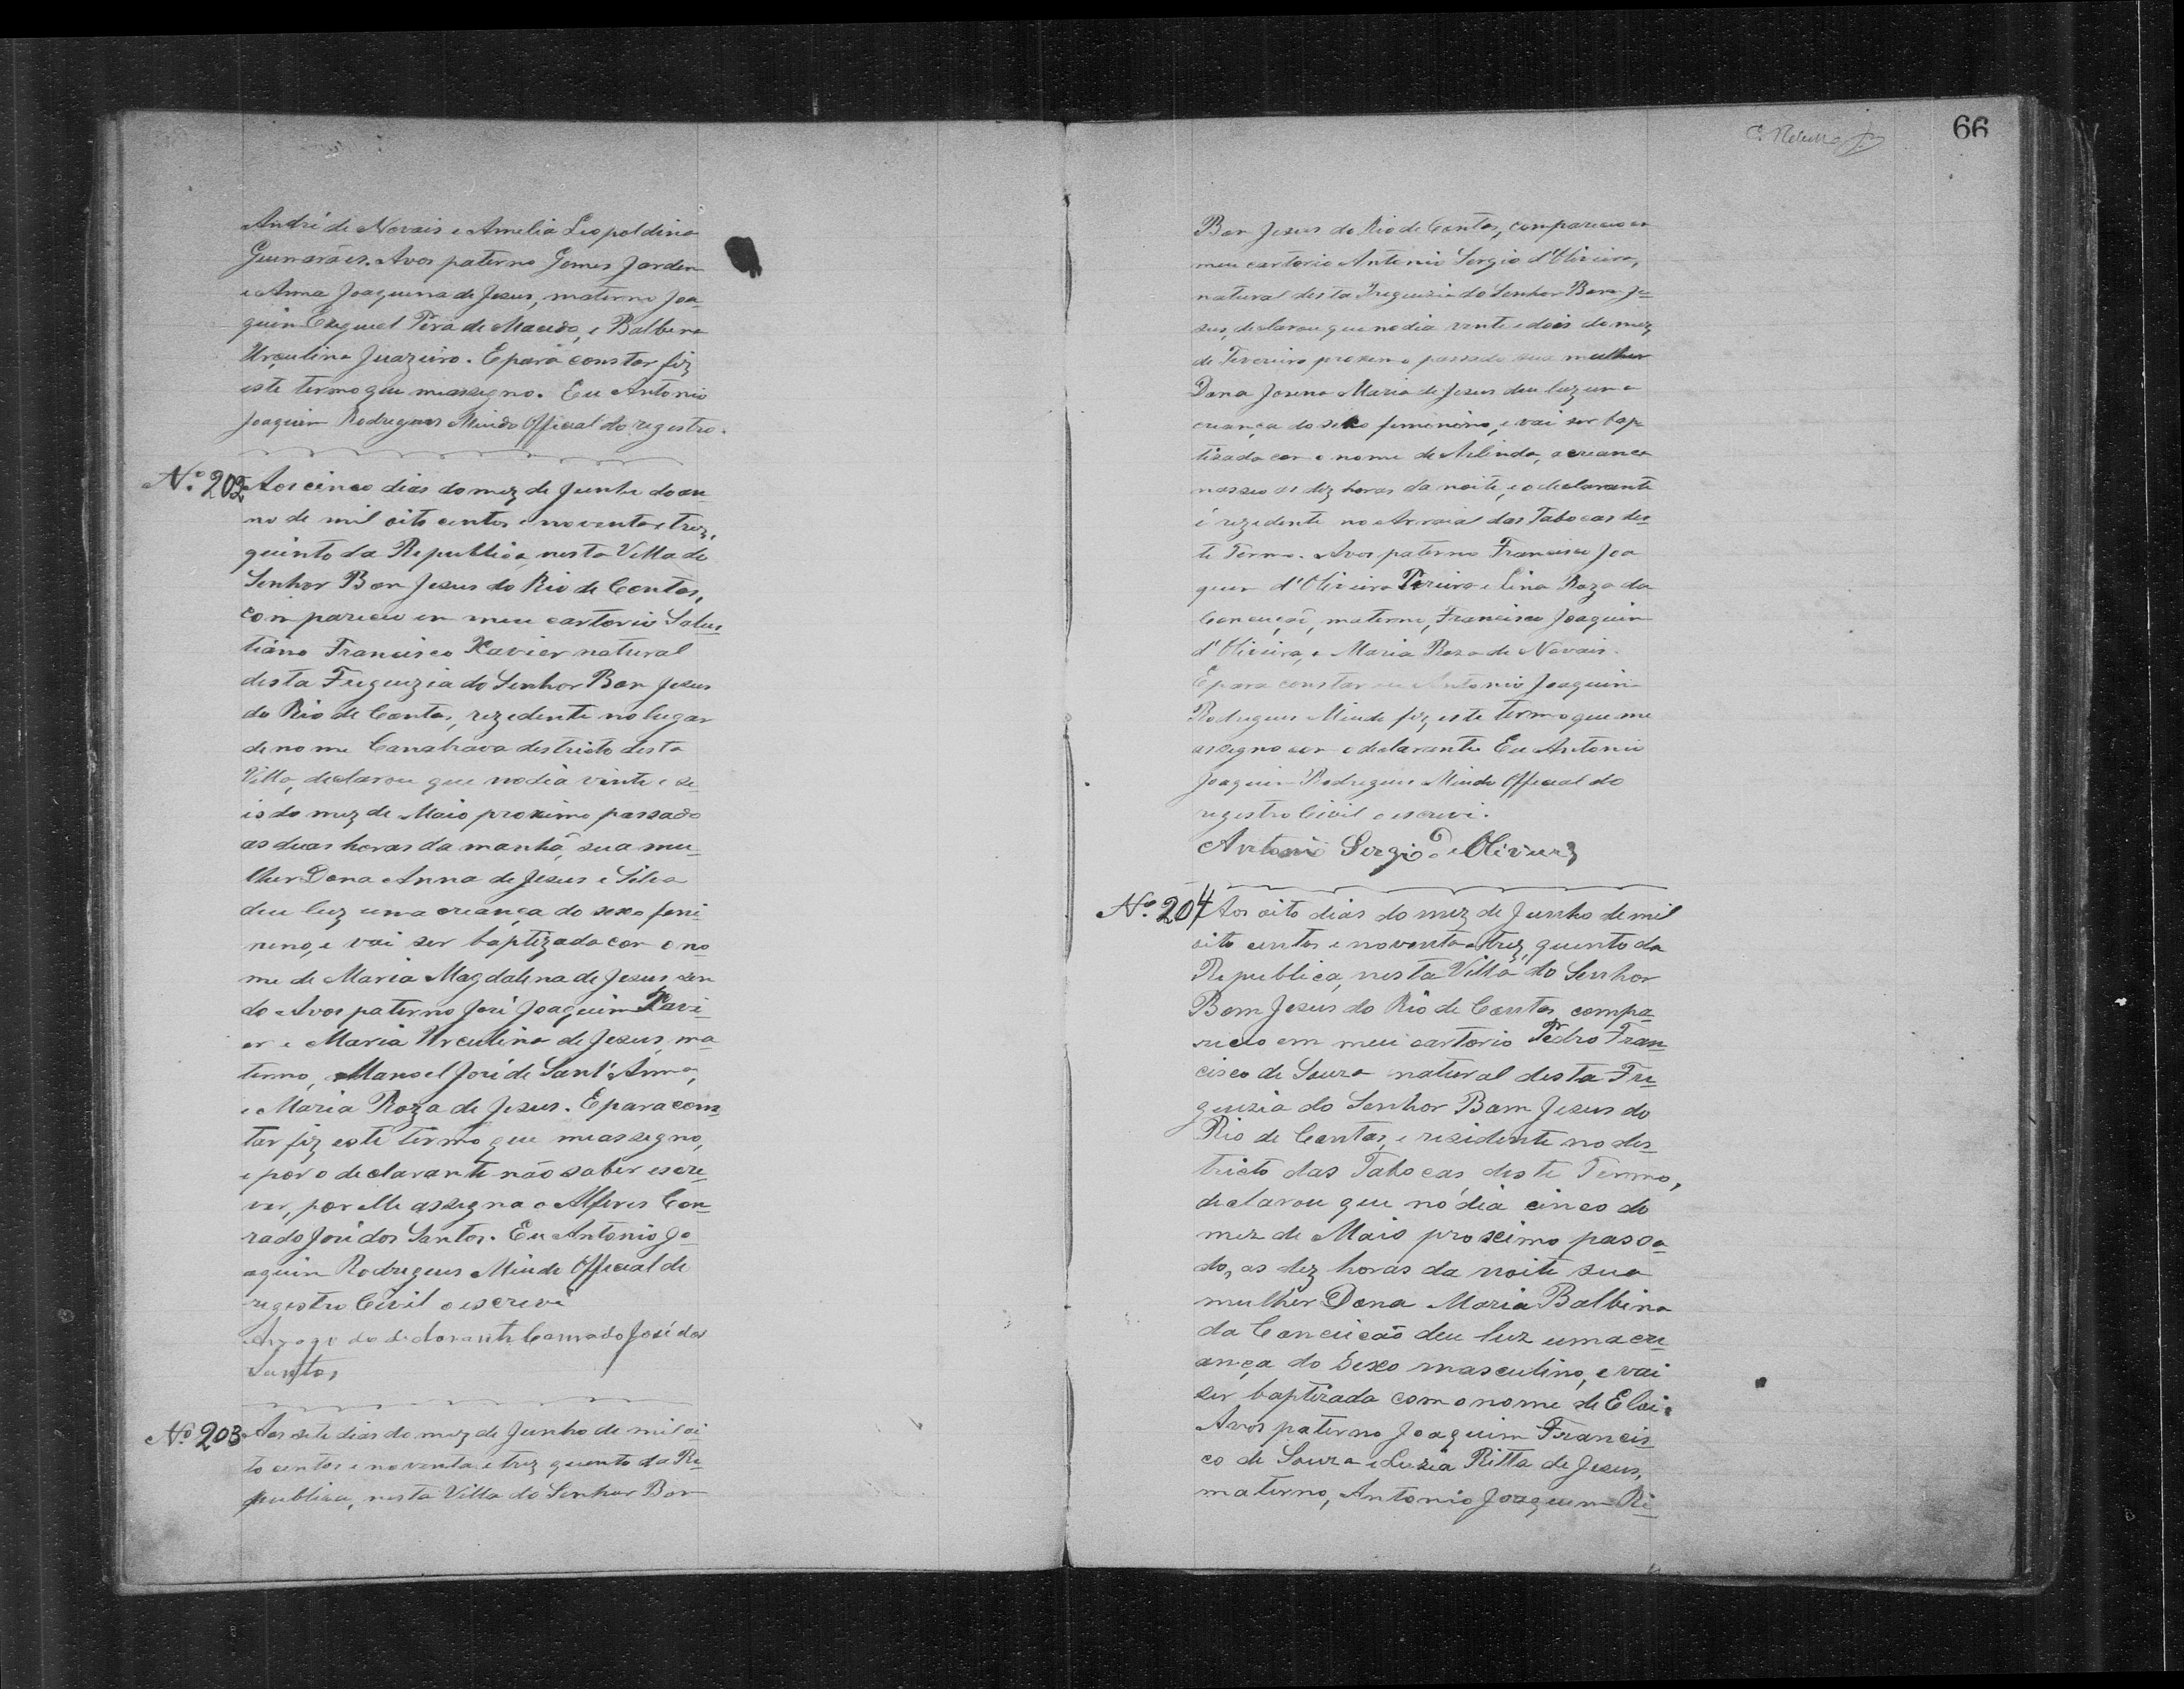 André de Novais e Amelia Leopoldina
Guimarães. Avos paterno Gomes Jardem
e Anna Joaquina de Jesus, materno Joa
quim Ezequiel Pera de Macedo, e Balbina
Urculina Juazeiro. E para constar fiz
este termo que me assegno. Eu Antonio
Joaquim Rodrigues Miudo Official do registro.
Nº 202 Aos cinco dias do mez de Junho do an
no de mil oito centos e noventa e trez,
quinto da Republica, nesta Villa do
Senhor Bom Jesus do Rio de Contas,
compareceu em meu cartorio Salus
tiano Francisco Xavier natural
desta Freguezia do Senhor Bom Jesus
do Rio de Contas, rezedente no lugar
de nome Canabrava destricto desta
Villa, declarou que no dia vinte e se
is do mez de Maio proximo passado
as duas horas da manhã, sua mu
lher Dona Anna de Jesus e Silva
deu luz uma creança do sexo femi
neno, e vai ser baptizada com o no
me de Maria Magdalena de Jesus, sen
do Avos paterno José Joaquim Xavi
er e Maria Urculina de Jesus, ma
terno, Manoel José de Sant'Anna,
e Maria Roza de Jesus. E para cons
tar fiz este termo que me assegno,
e por o declarante não saber escre
ver, por elle assegna o Alferes Con
rado José dos Santos. Eu Antonio Jo
aquim Rodrigues Miudo Official de
registro Civil o escrevi
Arogo do declarante Conrado José dos
Santos
Nº 203 Aos sete dias do mez de Junho de mil oi
to centos e noventa e trez quento da Re
publica, nesta Villa do Senhor Bom
66
Bom Jesus do Rio de Contas, compareceo em
meu cartorio Antonio Sergio d'Oliveira,
natural desta Freguezia do Senhor Bom Je
sus, declarou que no dia vinte e dois do mez
de Fevereiro proximo passado sua mulher
Dona Josena Maria de Jesus deu luz uma
creança do sexo femenino, e vai ser bap
tizada com o nome de Arlinda, a creança
nasceo as dez horas da noite, e o declarante
é rezedente no Arraial das Tabocas des
te Termo. Avos paterno Francisco Joa
quim d'Oliveira Pereira e Lina Roza da
Conceição, materno, Francisco Joaquim
d'Oliveira, e Maria Roza de Novais.
E para constar eu Antonio Joaquim
Rodrigues Miudo fiz este termo que me
assegno com o declarante Eu Antonio
Joaquim Rodrigues Miudo Official do
registro Civil o escrevi.
Antonio Sergio de Oliveira
Nº 204 Aos oito dias do mez de Junho de mil
oito centos e noventa e trez, quento da
Republica, nesta Villa do Senhor
Bom Jesus do Rio de Contas, compa
receo em meu cartorio Pedro Fran
cisco de Souza natural desta Fre
guezia do Senhor Bom Jesus do
Rio de Contas, e residente no des
tricto das Tabocas, deste Termo,
declarou que no dia cinco do
mez de Maio proximo passa
do, as dez horas da noite sua
mulher Dona Maria Balbina
da Conceicão deu luz uma cre
ança do sexo masculino, e vai
ser baptizada com o nome de Eloi.
Avos paterno Joaquim Francis
co de Souza e Luzia Ritta de Jesus,
materno, Antonio Joaquim Ri